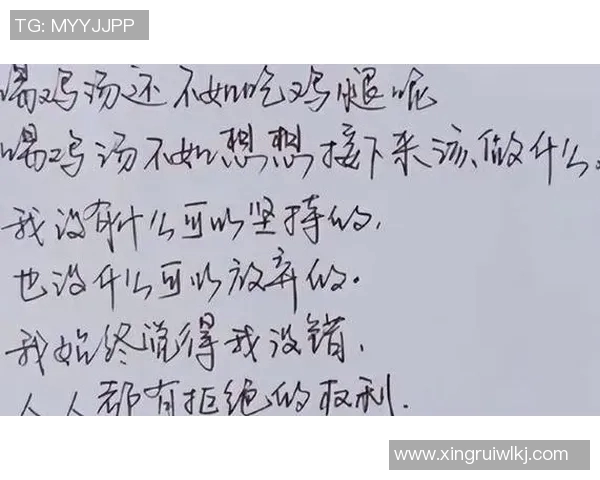 TG: MYYJJPP
喝鸡汤还不如吃鸡腿呢
喝鸡汤不如想想接下来该做什么。
我没有什么可以坚持的,
也没什么可以放弃的.
我始终觉得我没错,
人人都有拒绝的权利.
www.xingruiwlkj.com